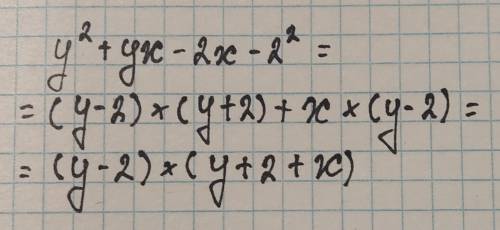 y² + yx - 2x - 2² =
= (y-2) × (y+2) + x × (y-2) =
= (y-2) × (y+2+x)